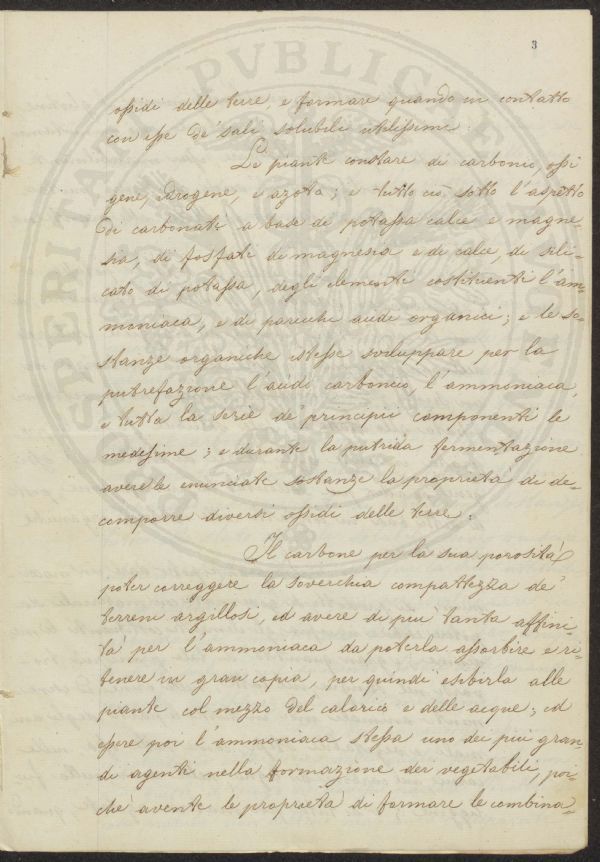 3
ossidi delle terre, e formare quando in contatto
con esse de' sali solubili utilissimi.
Le piante constare di carbonio, ossi
gene, idrogene, e azoto; e tutto ciò sotto l'aspetto
di carbonati a base di potassa calce e magne-
sia, di fosfati di magnesia e di calce, di sili-
cato di potassa, degli elementi costituenti l'am-
moniaca, e di parecchi acidi organici; e le so-
stanze organiche istesse sviluppare per la
putrefazione l'acido carbonico, l'ammoniaca,
e tutta la serie de' principii componenti le
medesime; e durante la putrida fermentazione
avere le enunciate sostanze la proprietà di de-
comporre diversi ossidi delle terre.
Il carbone per la sua porosità
poter correggere la soverchia compattezza de'
terreni argillosi, ed avere di più tanta affini-
tà per l'ammoniaca da poterla assorbire e ri-
tenere in gran copia, per quindi esibirla alle
piante col mezzo del calorico e delle acque; ed
essere poi l'ammoniaca stessa uno dei più gran-
di agenti nella formazione dei vegetabili, poi-
chè avente le proprietà di formare le combina-